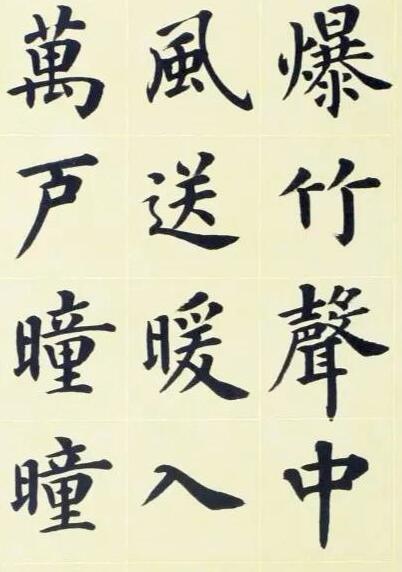 爆竹聲中
風送暖入
萬戸曈曈